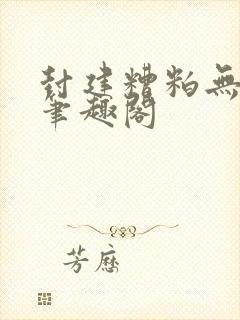 封建糟粕無
筆趣閣
芳歷